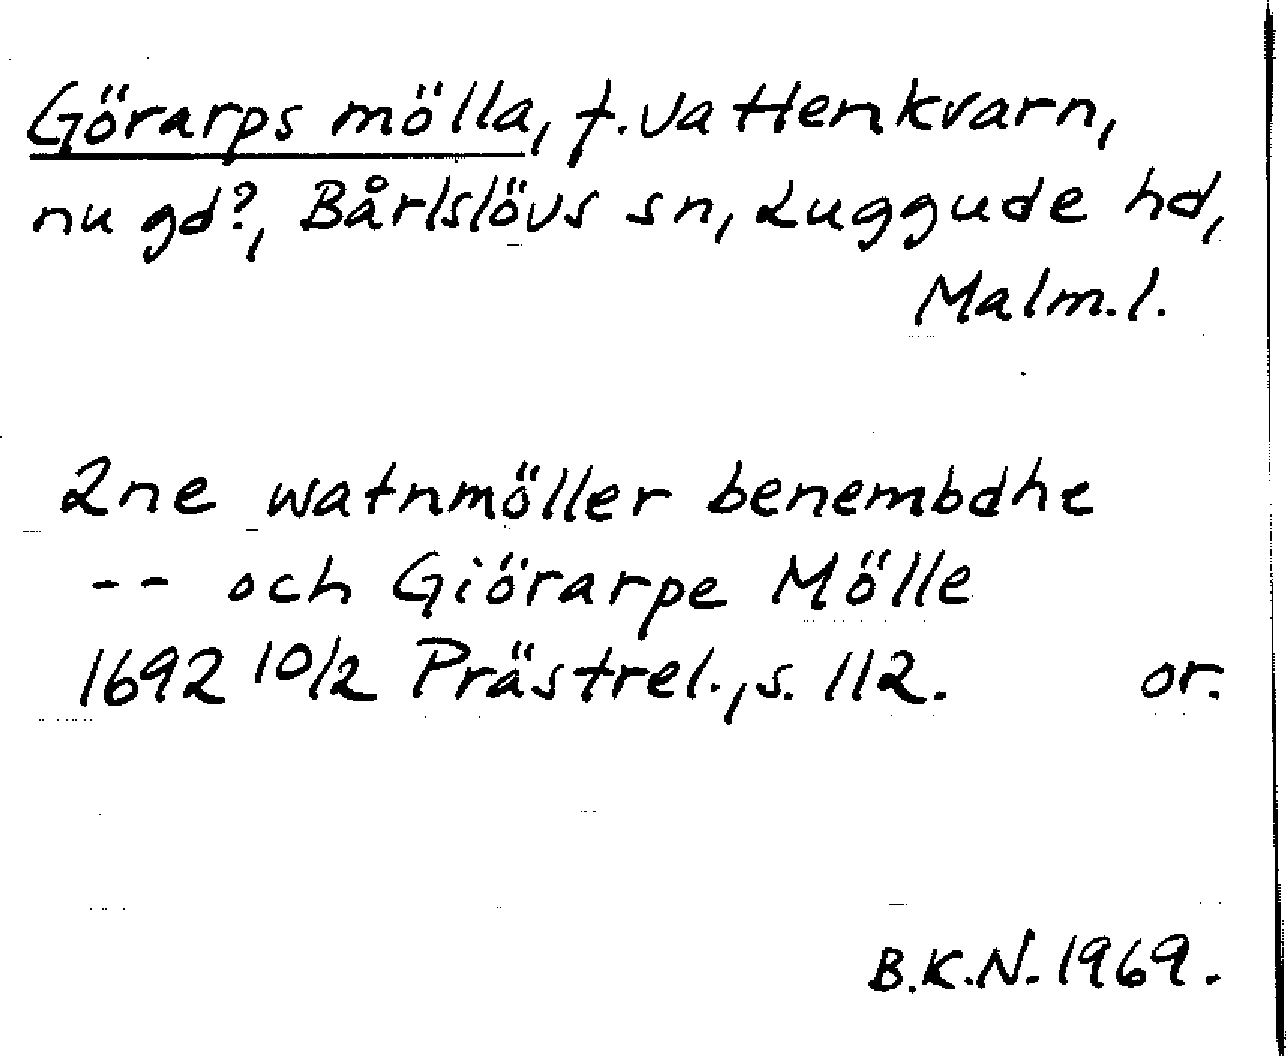 Görarps mölla, f. vattenkvarn,
nu gd?, Bårlslövs sn, Luggude hd,
Malm.l.
2ne watnmöller benembdhe
-- och Giörarpe Mölle
1692 10/2 Prästrel., s. 112. or.
B.K.N. 1969.